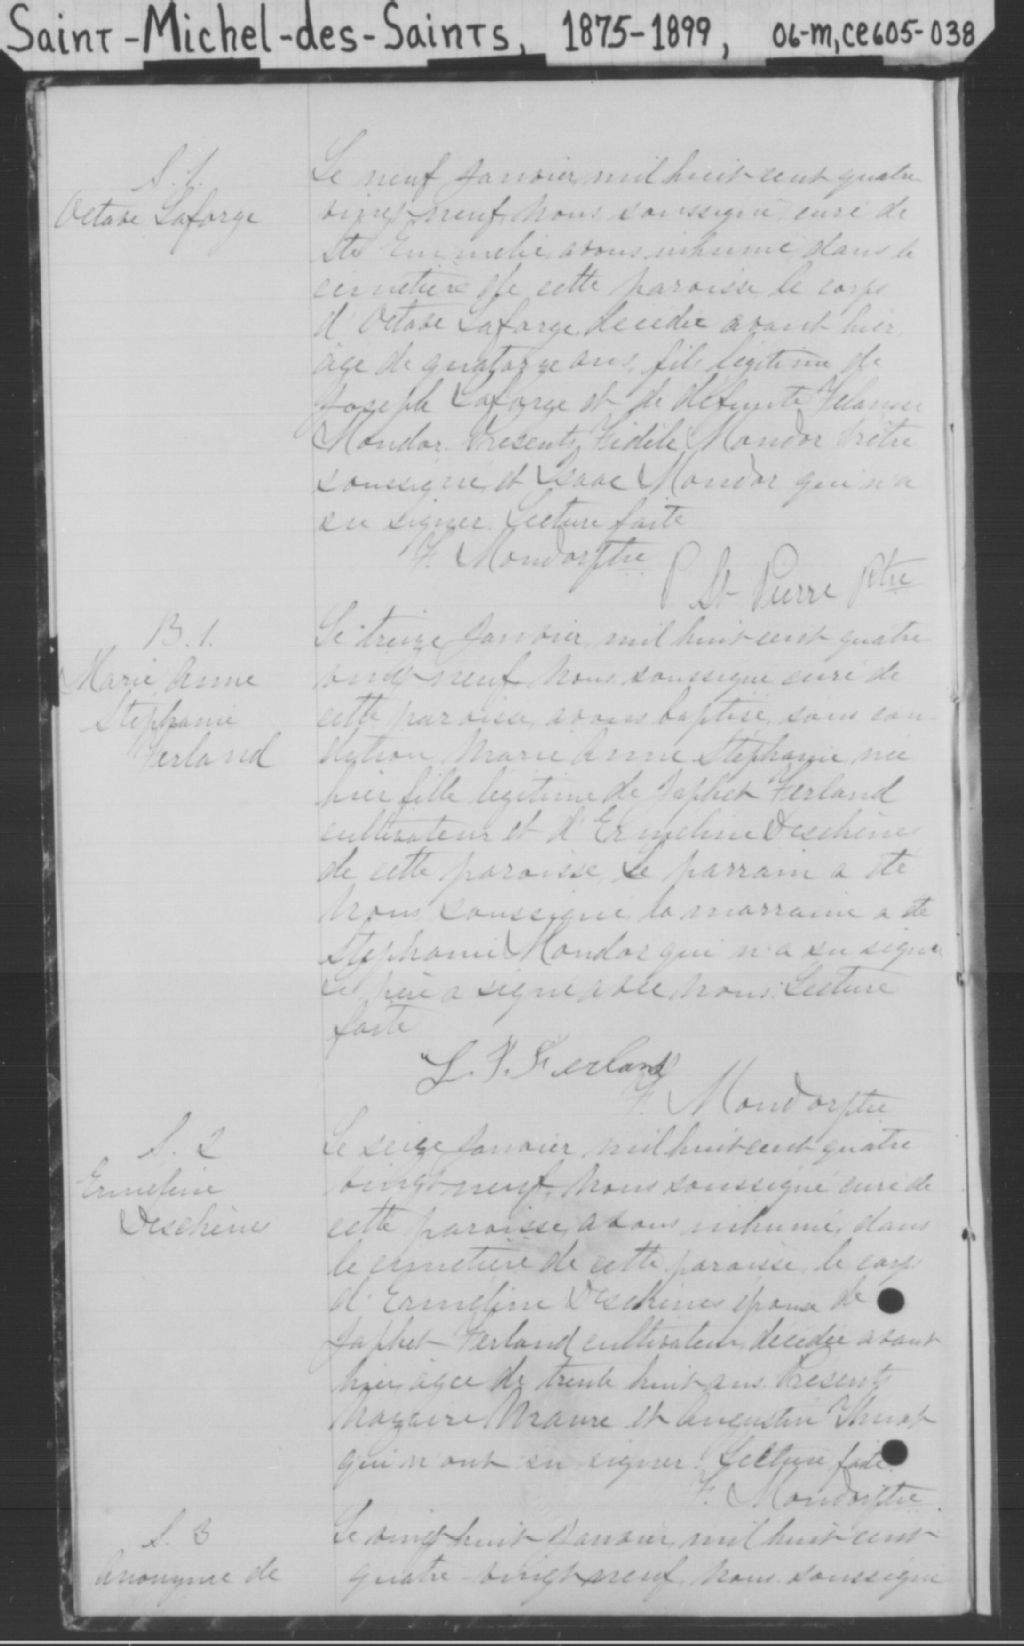 Saint-Michel-des-Saints, 1875-1899, 06-m, ce605-038
S. 1.
Octave Laforge
Le neuf Janvier mil huit cent quatre
vingt neuf, nous soussigné curé de
Ste Emmelie avons inhumé dans le
cimetière de cette paroisse le corps
d'Octave Laforge décédé avant hier
âgé de quatorze ans, fils légitime de
Joseph Laforge et de défunte
Mondor. Présents Fidèle Mondor Prêtre
soussigné et Isaac Mondor qui n'a
su signer. Lecture faite
F. Mondor ptre
P. St Pierre Ptre
B. 1.
Marie Anne
Stephanie
Ferland
Le treize Janvier mil huit cent quatre
vingt neuf, nous soussigné curé de
cette paroisse, avons baptisé, sans con
dition Marie Anne Stephanie née
hier fille légitime de Japhet Ferland
cultivateur et d'Ermeline Deschênes
de cette paroisse. Le parrain a été
nous soussigné la marraine a été
Stephanie Mondor qui n'a su signer
Le père a signé avec nous. Lecture
faite
L. J. Ferland
F. Mondor ptre
S. 2
Ermeline
Deschène
Le seize Janvier mil huit cent quatre
vingt neuf, nous soussigné curé de
cette paroisse, avons inhumé, dans
le cimetière de cette paroisse, le corps
d'Ermeline Deschênes épouse de
Japhet Ferland cultivateur, décédée avant
hier âgée de trente huit ans. Présents
Nazaire Maure et Augustin
qui n'ont su signer. Lecture faite.
F. Mondor ptre
S. 3
Anonyme de
Le vingt huit Janvier mil huit cent
quatre-vingt neuf, nous soussigné